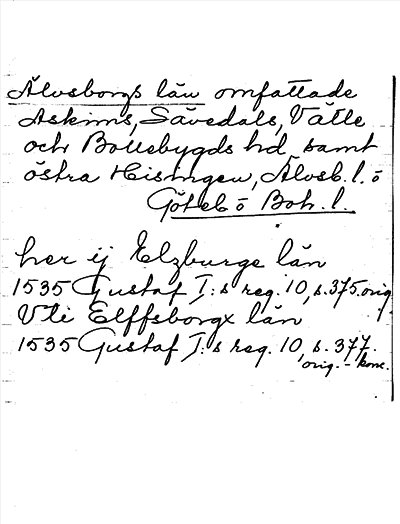 Älvsborgs län omfattade
Askims, Sävedals, Vättle
och Bollebygds hd samt
östra Hisingen, Älvsb. l. o
Göteb o Boh. l.
her ij Elzburge län
1535 Gustaf I:s reg. 10, s. 375. orig.
Vti Elffsborgx län
1535 Gustaf I:s reg. 10, s. 377.
orig. - konc.